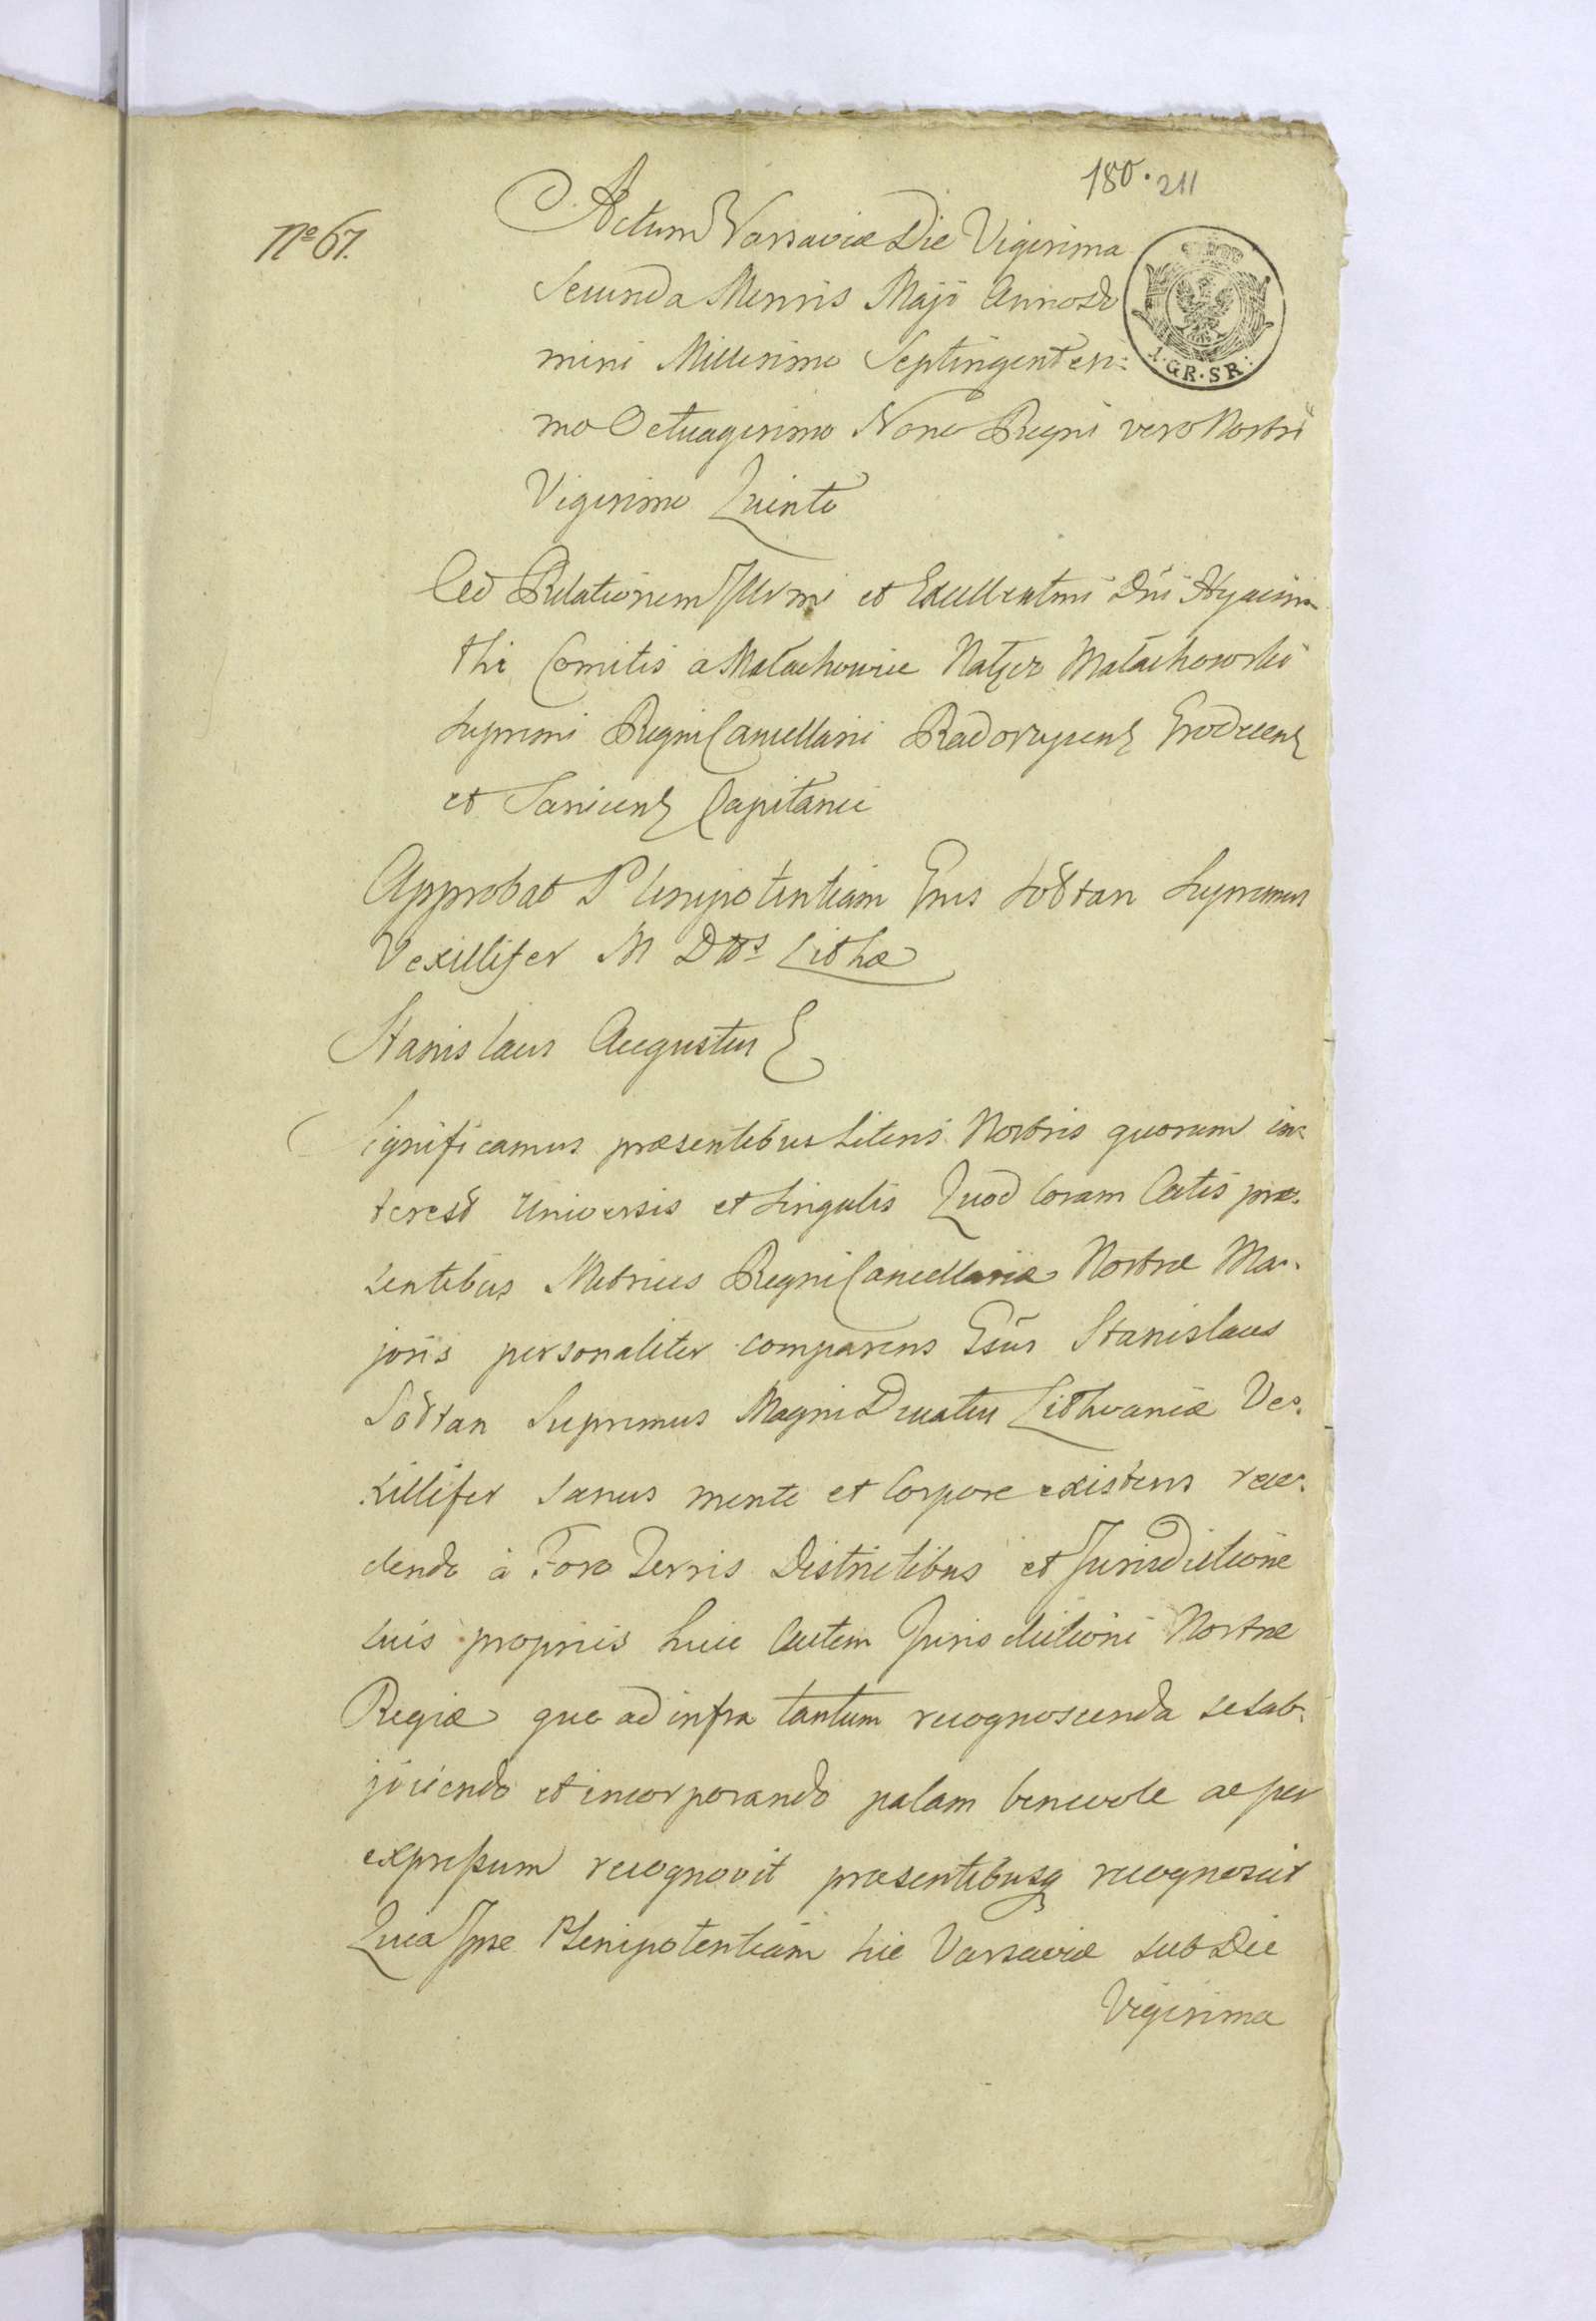 180. 211
No 67.
Actum Varsaviæ Die Vigesima
Secunda Mensis Maji Anno Do
mini Millesimo Septingentesi:
mo Octuagesimo Nono Regni vero Nostri
Vigesimo Quinto
1. GR. SR:
Ad Relationem Illrmi et Excellentmi Dni Hyacin
thi Comitis a Małachowice Nałęcz Małachowski
Supremi Regni Cancellarii Radoszycens Grodecens
et Sanicens Capitanei
Approbat Plenipotentiam Gnus Sołtan Supremus
Vexillifer M D Lithæ
Stanislaus Augustus
Significamus præsentibus Literis Nostris quorum in:
terest Universis et Singulis Quod Coram Actis præ:
sentibus Metrices Regni Cancellariæ Nostræ Ma:
joris personaliter comparens Gsus Stanislaus
Sołtan Supremus Magni Ducatus Lithvaniæ Ve:
xillifer Sanus mente et Corpore existens rece:
dendo à Foro Terris Districtibus et Jurisdictione
suis propriis huic Autem Jurisdictioni Nostræ
Regiæ quo ad infra tantum recognoscenda se sub:
jiciendo et incorporando palam benevole ac per
expressum recognovit præsentibusq recognoscit
Quia Ipse Plenipotentiam hic Varsaviæ sub Die
Vigesima